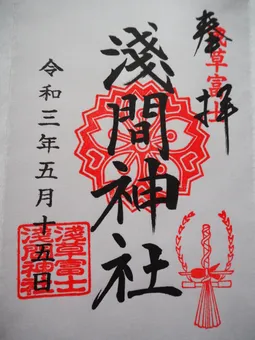 奉拝
浅草富士
淺間神社
令和三年五月十五日
淺草富士
浅間神社